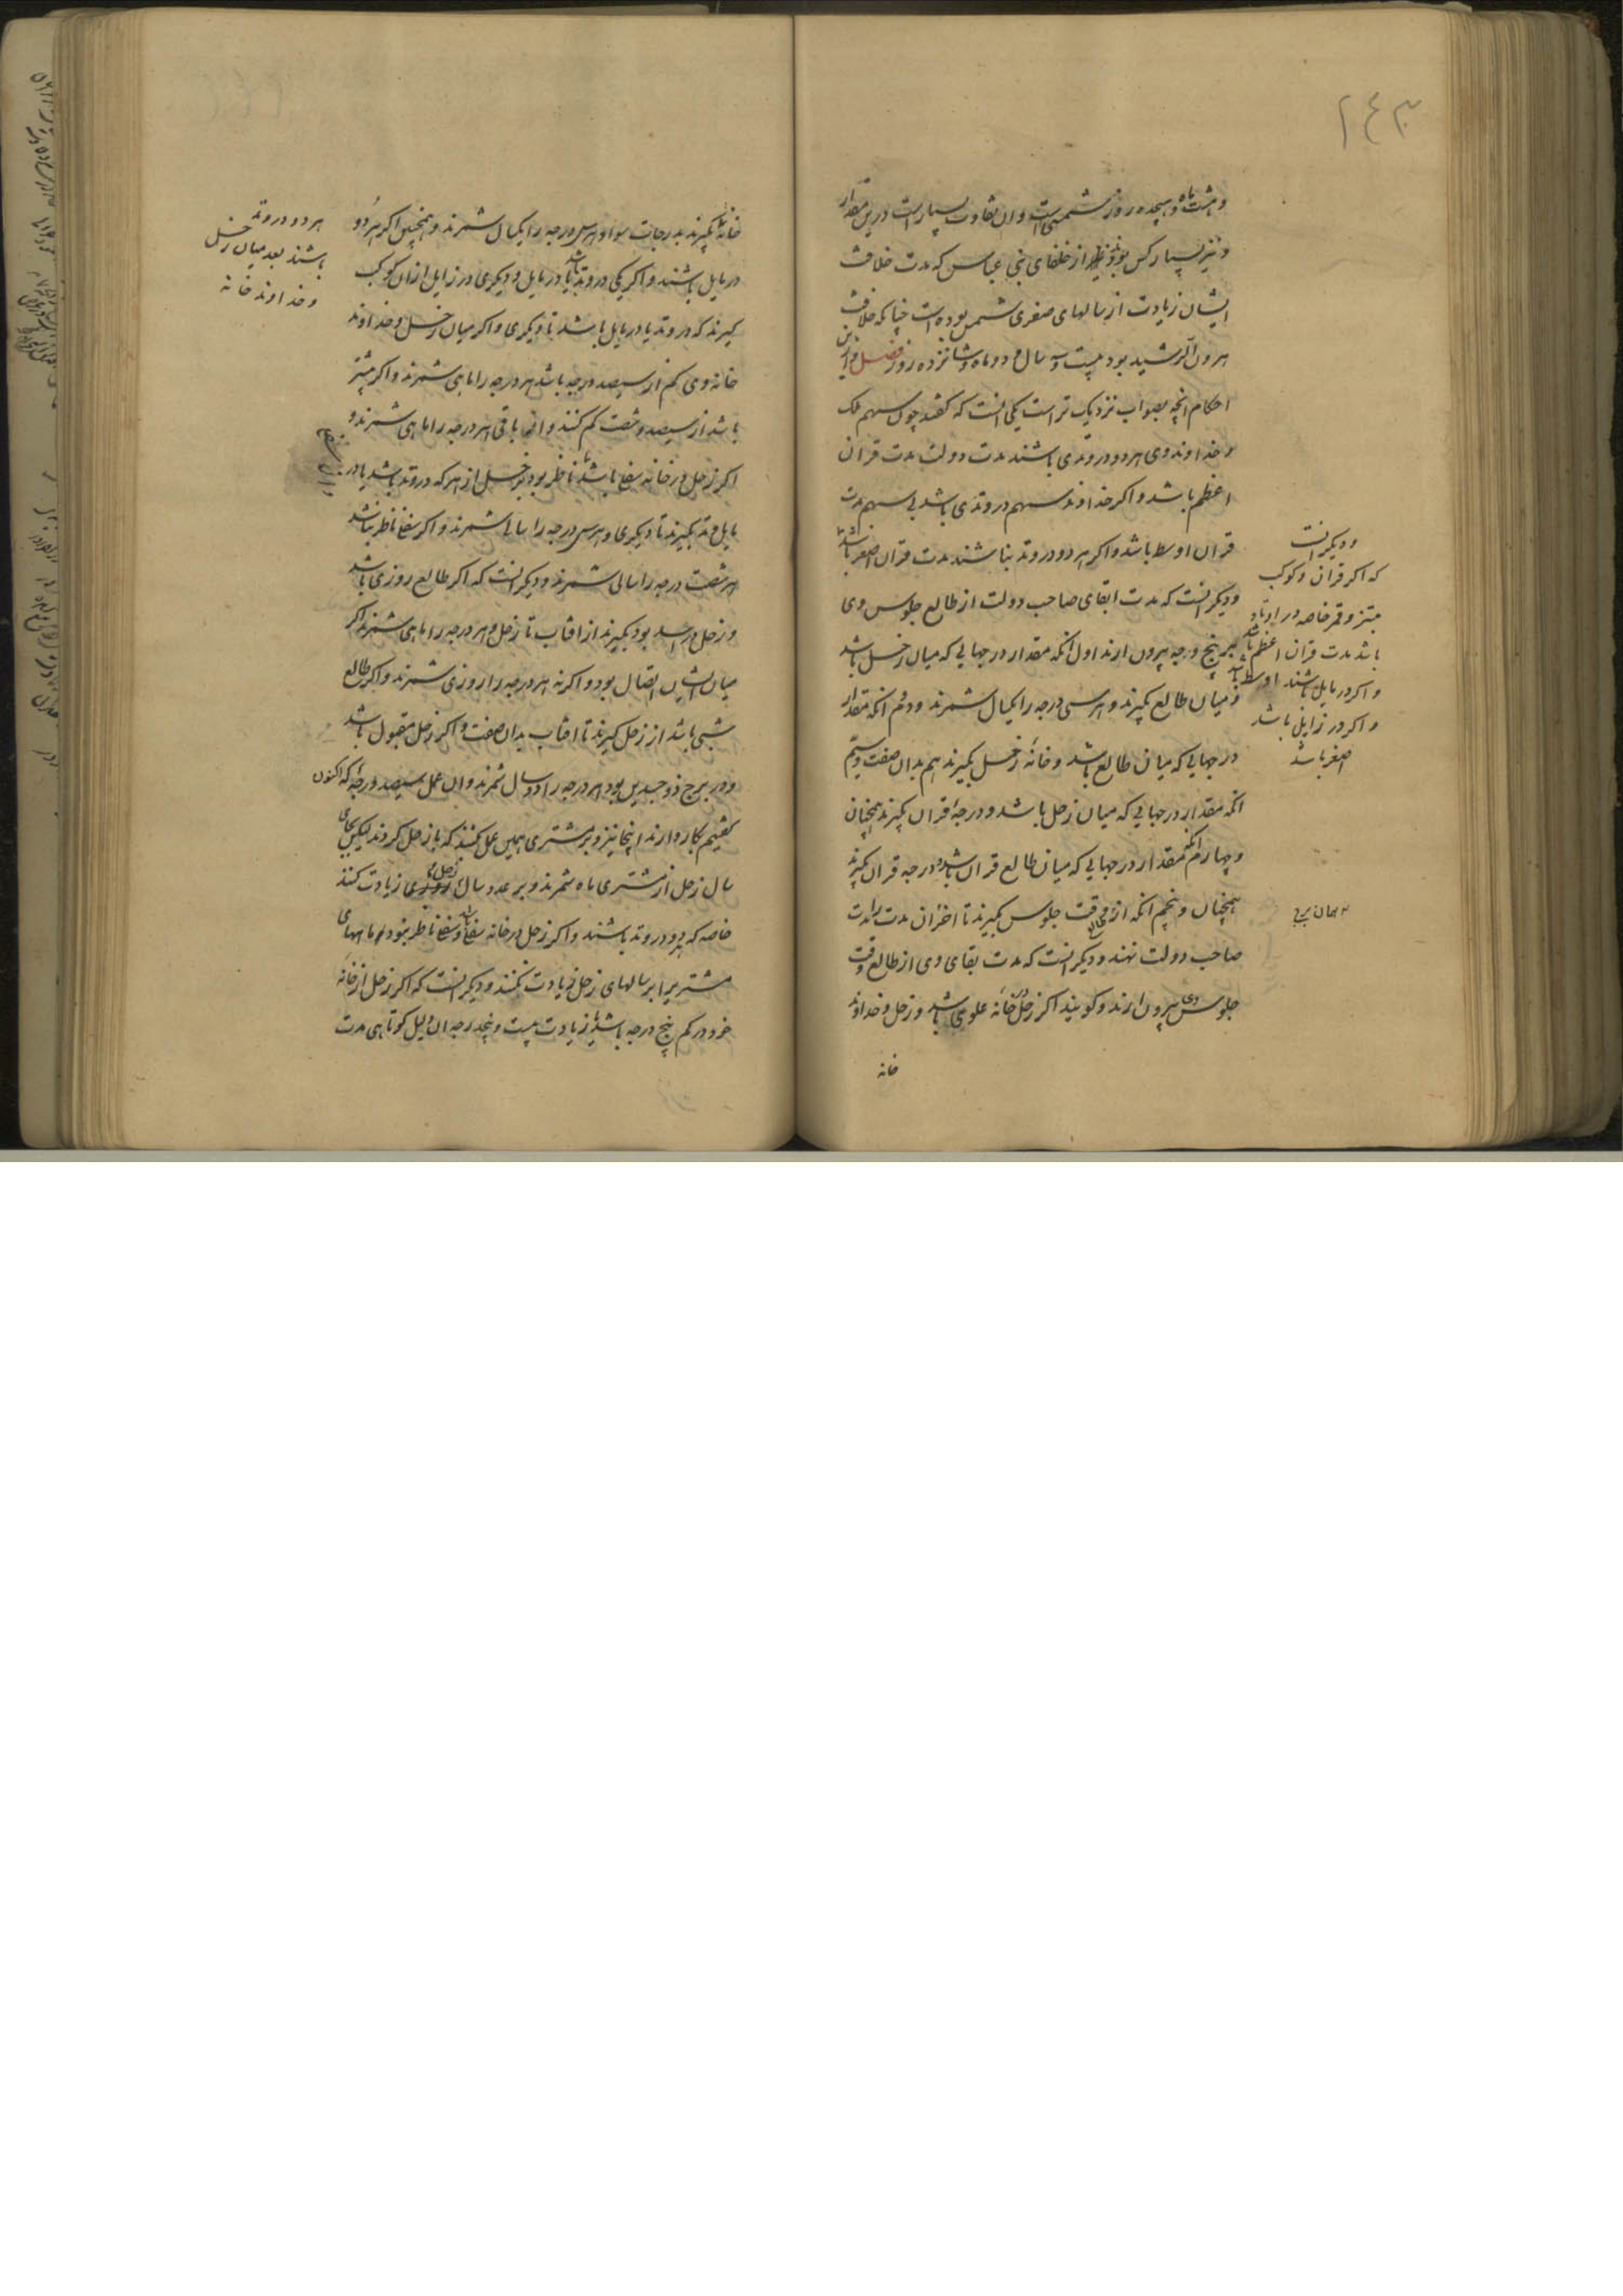 ۲۴۳
و هشت ماه و هیجده روز شمسی است و ان تفاوت بسیار است درین مقدار
و نیز بسیار کس بوده از خلفای بنی عباس که مدت خلافت
ایشان زیادت از سالهای صغری شمس بوده است چنانکه خلافت
هرون الرشید بود بیست و سه سال و دو ماه و شانزده روز فصل و از این
احکام انچه بصواب نزدیک تر است یکی انست که گفتند چون سهم ملک
و خداوند وی هر دو در وتدی باشند مدت دولت مدت قران
اعظم باشد و اکر خداوند سهم در وتدی باشد بی سهم مدت
قران اوسط باشد و اکر هر دو در وتد نباشند مدت قران اصغر باشد
و دیکر انست که مدت ابقای صاحب دولت از طالع جلوس وی
بر پنج وجه بیرون ارند اول انکه مقدار درجهایی که میان زحل باشد
و میان طالع بکیرند و هر سی درجه را یکسال شمرند و دوم انکه مقدار
درجهایی که میان طالع باشد و خانه زحل بکیرند هم بدان صفت و سیم
انکه مقدار درجهایی که میان زحل باشد و درجه قران بکیرند همچنان
و چهارم انکه مقدار درجهایی که میان طالع قران باشد و درجه قران بکیرند
همچنان و پنجم انکه از وقت جلوس بکیرند تا اخر ان مدت را مدت
صاحب دولت نهند و دیکر انست که مدت بقای وی از طالع وقت
جلوس وی بیرون ارند و کویند اکر زحل در خانه علوی باشد و زحل و خداوند
خانه
و دیکر انست
که اکر قران و کوکب
مبتز و قمر خاصه در اوتاد
باشد مدت قران اعظم باشد
و اکر در مایل باشند اوسط باشد
و اکر در زایل باشد
اصغر باشد
خانه بکیرند بدرجات سوا و هر سی درجه را یکسال شمرند و همچنین اکر هر دو
در مایل باشند و اکر یکی در وتد باشد یا در مایل و دیکری در زایل از ان کوکب
کیرند که در وتد یا در مایل باشد تا دیکری و اکر میان زحل و خداوند
خانه وی کم از سیصد درجه باشد هر درجه را ماهی شمرند و اکر بیشتر
باشد از سیصد و شصت کم کنند و انچه باقی هر درجه را ماهی شمرند و
اکر زحل در خانه سفلی باشد یا ناظر بود بزحل از هر که در وتد باشد یا در
مایل وتد بکیرند تا دیکری و هر سی درجه را سالی شمرند و اکر سفلی ناظر نباشد
هر شصت درجه را سالی شمرند و دیکر انست که اکر طالع روزی باشد
و زحل در اسد بود بکیرند از افتاب تا زحل و هر درجه را ماهی شمرند اکر
میان ایشان اتصال بود و اکر نه هر درجه را روزی شمرند و اکر طالع
شبی باشد از زحل کیرند تا افتاب بدان صفت و اکر زحل مقبول باشد
و در برج ذو جسدین بود هر درجه را دو سال شمرند و ان عمل سیصد درجه که اکنون
کفتیم بکار دارند اینجا نیز و بر مشتری همین عمل کنند که با زحل کردند لیکن بجای
سال زحل از مشتری ماه شمرند و بر عدد سال زحل زیادت کنند
خاصه که هر دو در وتد باشند و اکر زحل در خانه سفلی باشد و سفلی ناظر نبود ماههای
مشتری را بر سالهای زحل زیادت نکنند و دیکر انست که اکر زحل از خانه
خود در کم پنج درجه باشد یا زیادت بیست و پنجدرجه ان دلیل کوتاهی مدت
هر دو در وتد
باشند بعد میان زحل
و خداوند خانه